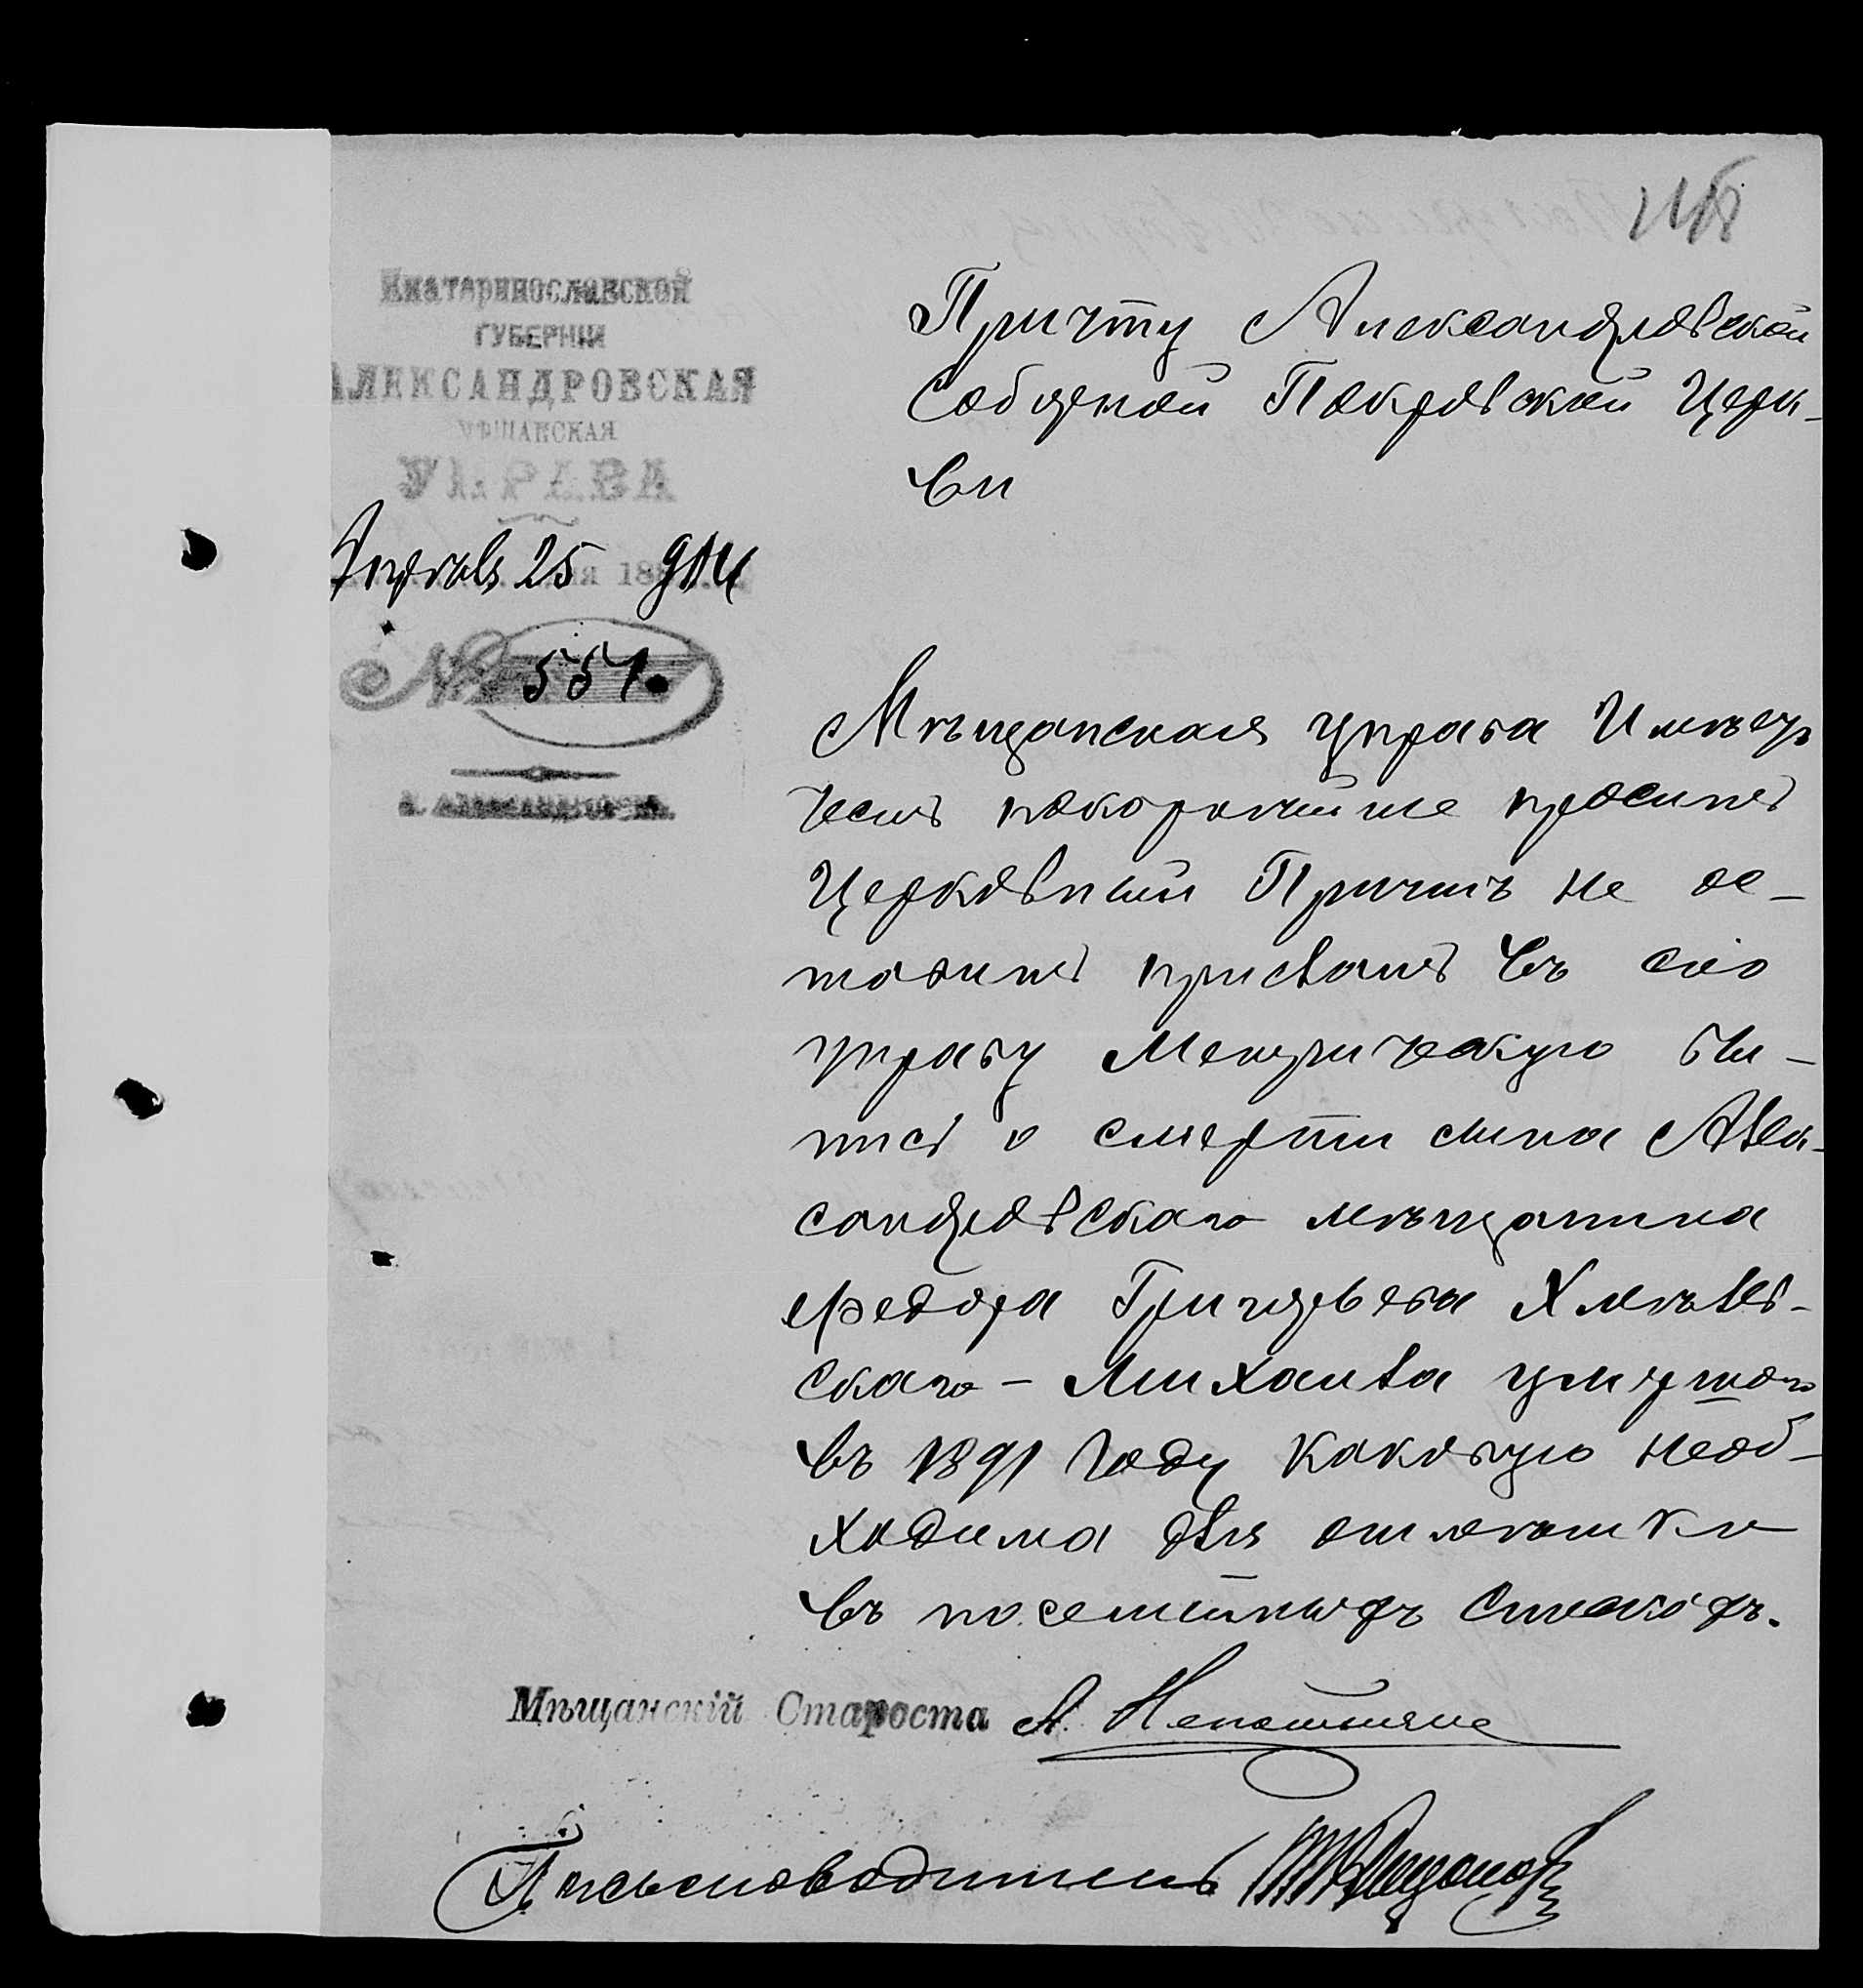 Екатеринославской
ГУБЕРНІИ
АЛЕКСАНДРОВСКАЯ
МѢЩАНСКАЯ
УПРАВА
Апрѣль 25 дня 18
№ 557.
г. Александровскъ.
Причту Александровской
Соборной Покровской Церк-
ви
Мѣщанская управа Имѣетъ
честь покорнѣйше просить
Церковный Причтъ не ос-
тавить прислать въ сію
управу Метрическую вы-
пись о смерти сына Алек-
сандровскаго мѣщанина
Федора Григорьева Хмѣль-
скаго - Михаила умершаго
въ 1891 году каковую необ-
ходима для отмѣтки
въ посемѣйныхъ спискахъ.
Мѣщанскій Староста А.
Письмоводитель